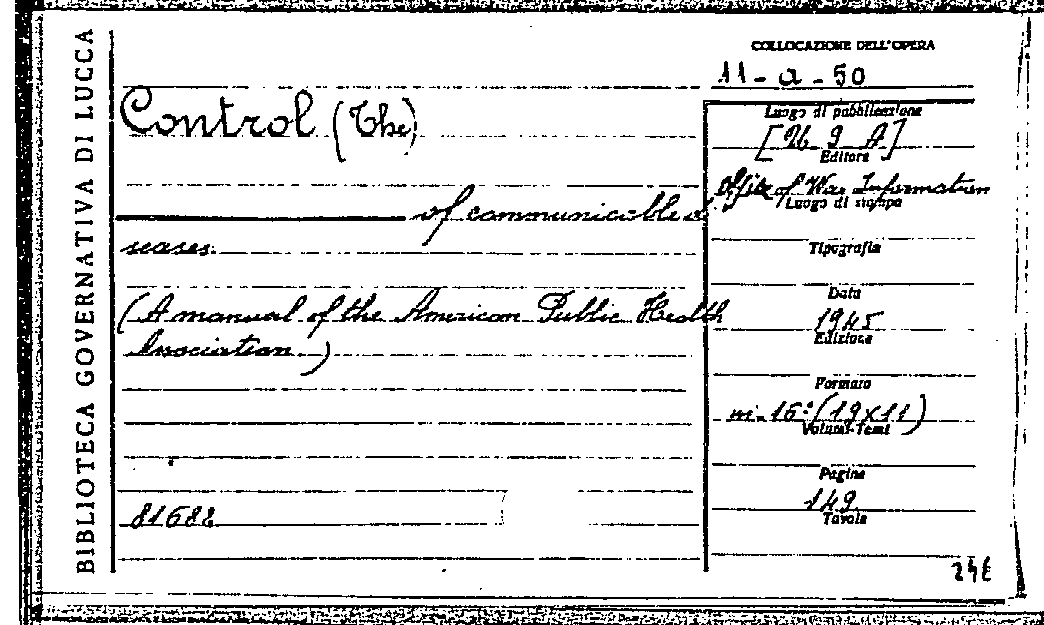 BIBLIOTECA GOVERNATIVA DI LUCCA
COLLOCAZIONE DELL'OPERA
11-a-50
Control (The)
of communicable di
seases.
(A manual of the American Public Health
Association)
81682
Luogo di pubblicazione
[U S A]
Editore
Office of War Information
Luogo di stampa
Tipografia
Data
1945
Edizione
Formato
in-16° (19x11)
Volumi-Tomi
Pagine
149
Tavole